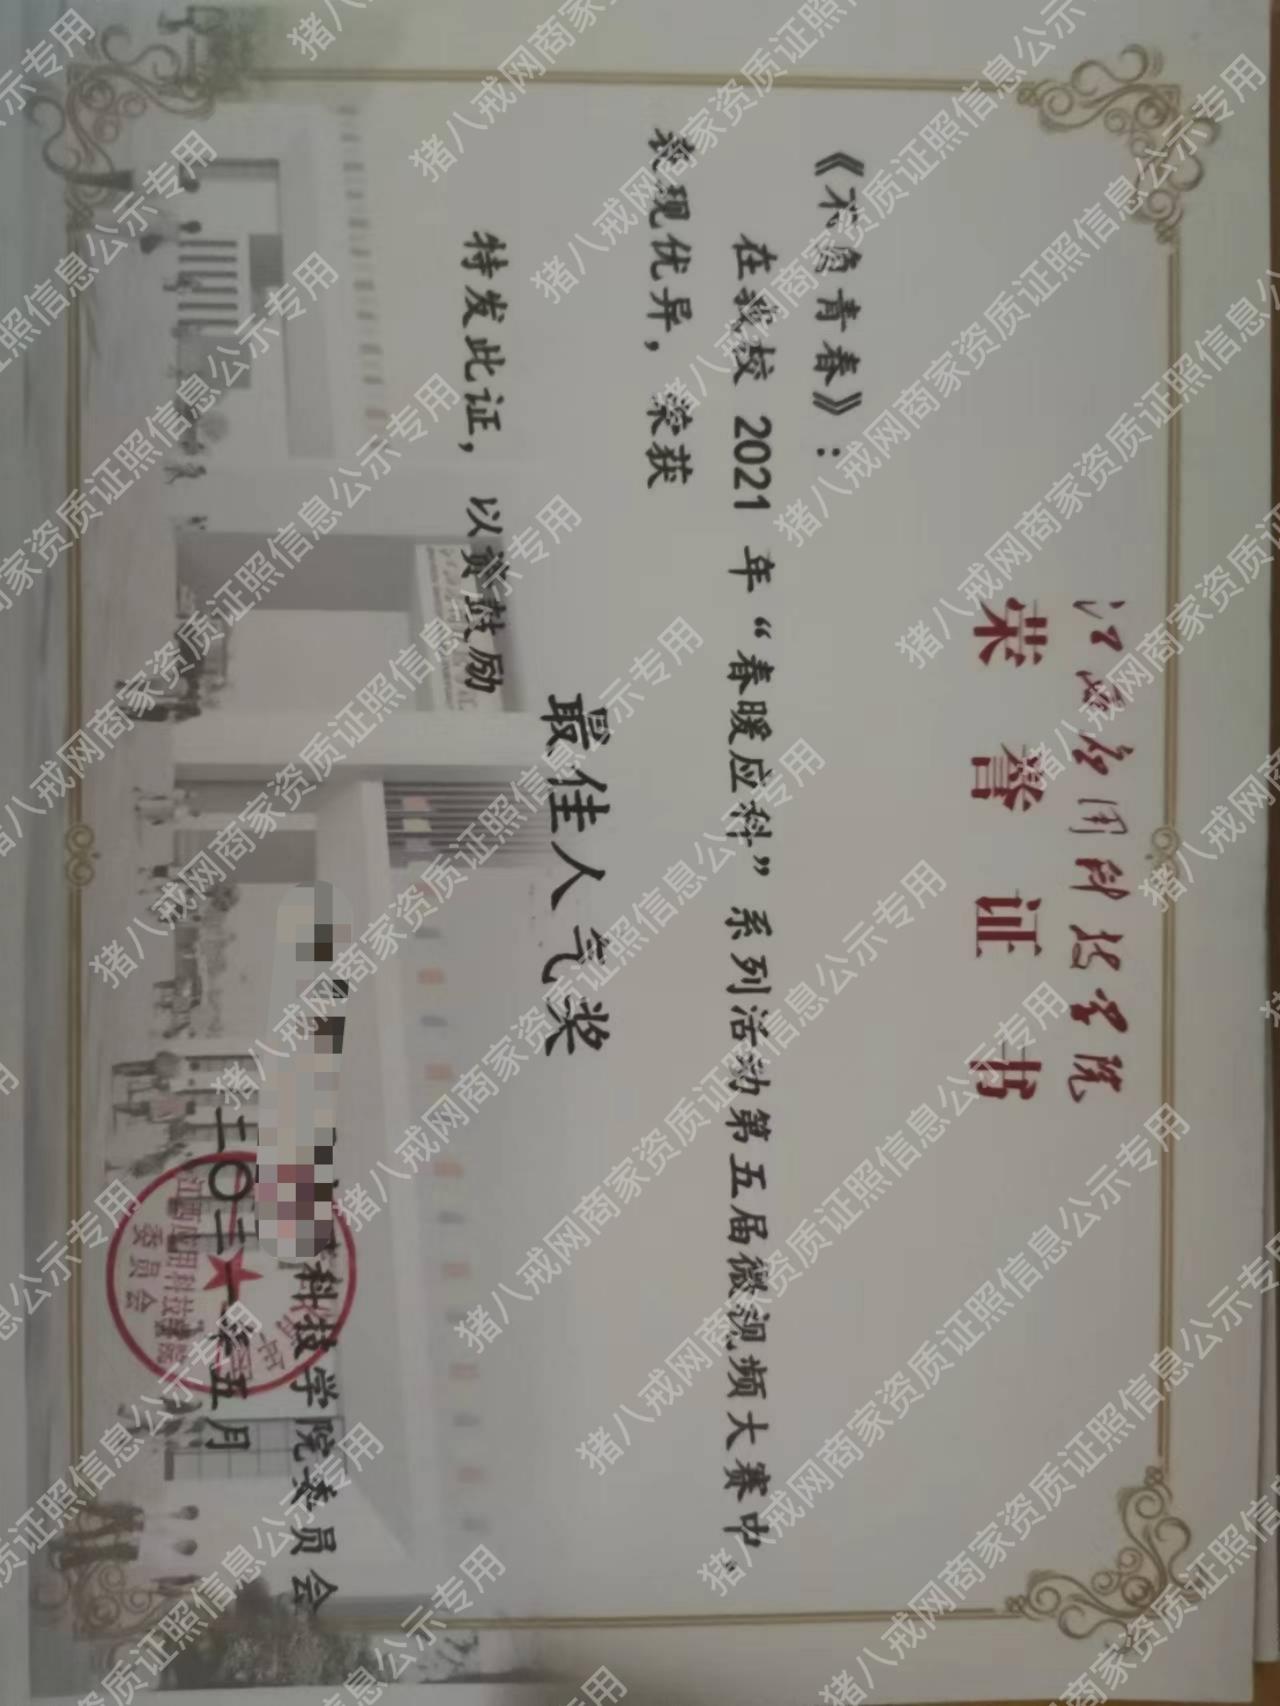 江西应用科技学院
荣誉证书
《不负青春》：
在我校 2021 年“春暖应科”系列活动第五届微视频大赛中，
表现优异，荣获
最佳人气奖
特发此证，以资鼓励
科技学院委员会
二〇二一年五月
江西应用科技学院
委员会
猪八戒网商家资质证照信息公示专用